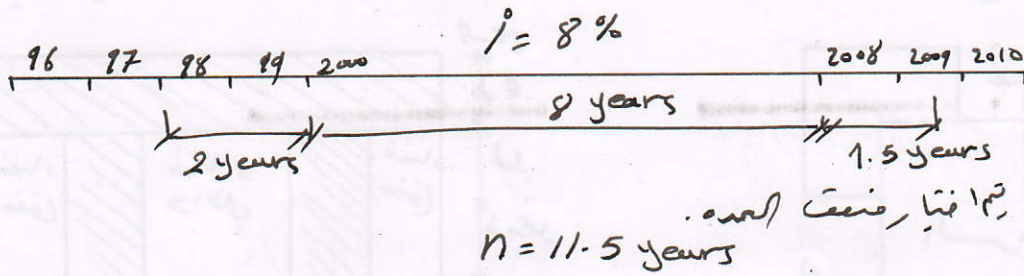 i = 8 %
96 97 98 99 2000 2008 2009 2010
8 years
2 years 1.5 years
تم اختيار منتصف المده.
n = 11.5 years